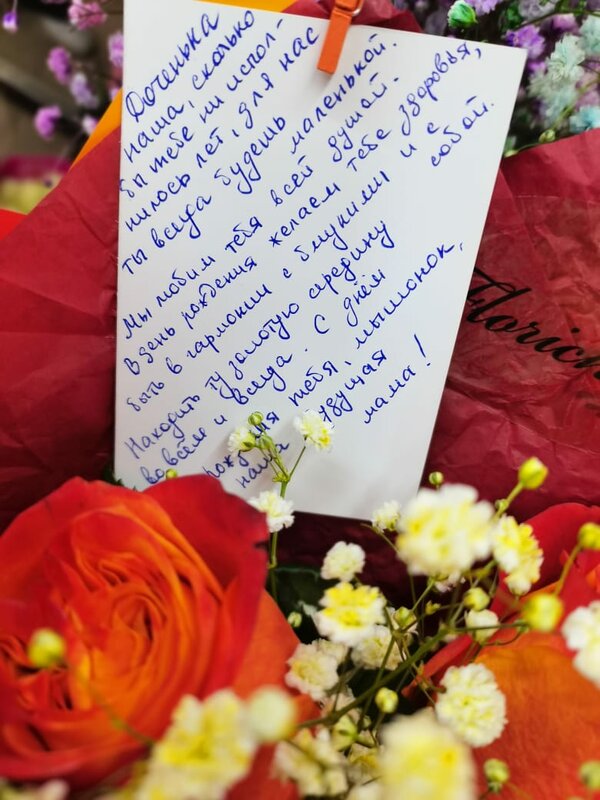 Доченька
наша, сколько
бы тебе ни испол-
нилось лет, для нас
ты всегда будешь маленькой.
Мы любим тебя всей душой.
В день рождения желаем тебе здоровья,
быть в гармонии с близкими и с собой.
Находить ту золотую середину
во всём и всегда. С днём
рождения тебя, мышонок,
наша будущая
мама!
Florich